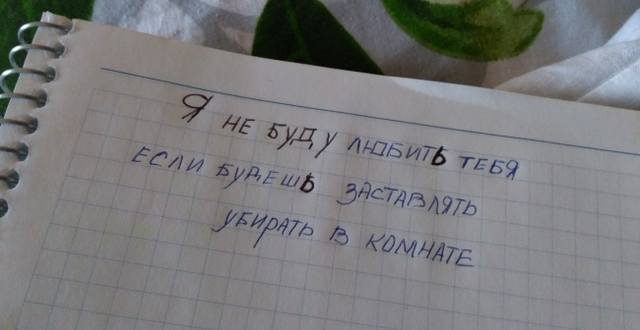 Я НЕ БУДУ ЛЮБИТЬ ТЕБЯ
ЕСЛИ БУДЕШЬ ЗАСТАВЛЯТЬ
УБИРАТЬ В КОМНАТЕ